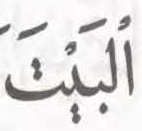 ٱلْبَيْتَ